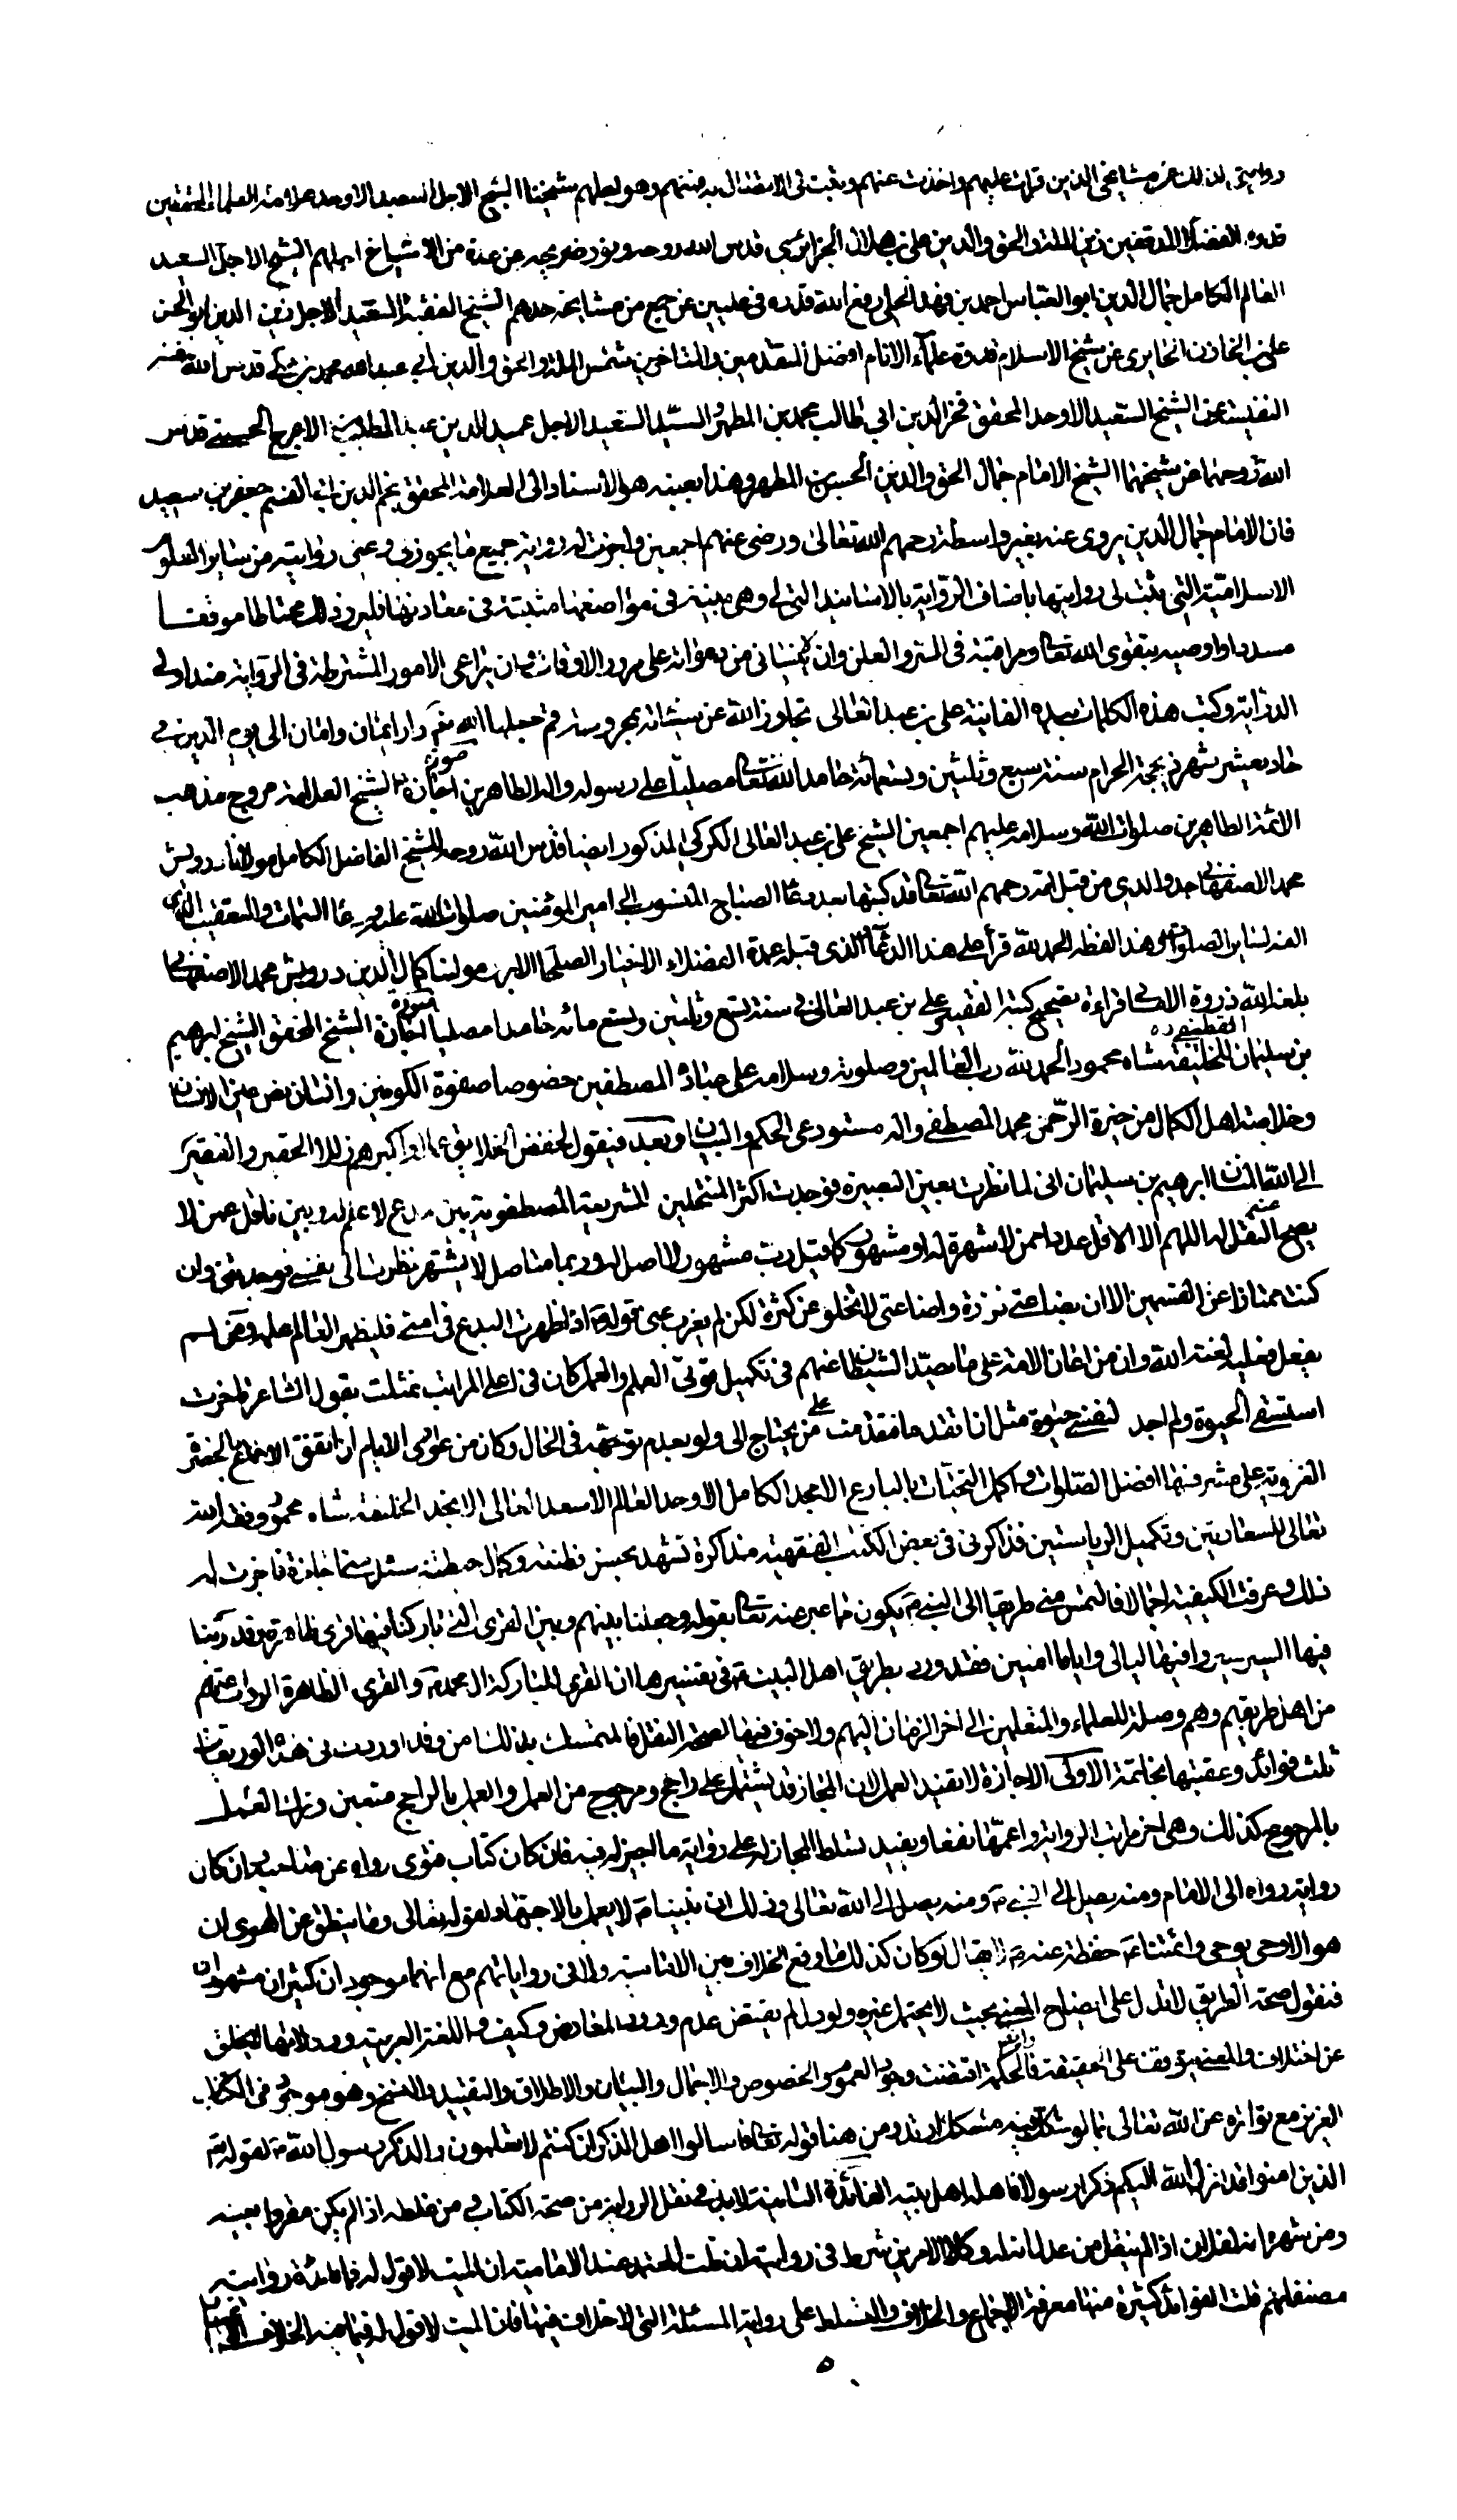 روايتي لذلك عن مشايخي الذين قرأت عليهم واخذت عنهم وثبت لي الاتصال بهم وهو اجلهم شيخنا الشيخ الاجل السعيد الاوحد علامة العلماء المحققين
قدوة الفضلا المدققين زين الملة والحق والدين علي بن هلال الجزائري قدس الله روحه ونور ضريحه عن عدة من الاشياخ اجلهم الشيخ الاجل السعيد
العالم الكامل جمال الدين ابو العباس احمد بن فهد الحلي رفع الله قدره في عليين عن جمع من مشايخه احدهم الشيخ الفقيه السعيد الاجل زين الدين ابو الحسن
علي بن الخازن الحايري عن شيخ الاسلام قدوة علماء الانام افضل المتقدمين والمتاخرين شمس الملة والحق والدين ابي عبد الله محمد بن مكي قدس الله نفسه
النفيسة عن الشيخ السعيد الاوحد المحقق فخر الدين ابي طالب محمد بن المطهر والسيد السعيد الاجل عميد الدين عبد المطلب بن الاعرج الحسيني قدس
الله روحهما عن شيخهما الشيخ الامام جمال الحق والدين الحسن بن المطهر وهذا بعينه هو الاسناد الى العلامة المحقق نجم الدين ابي القسم جعفر بن سعيد
فان الامام جمال الدين يروى عنه بغير واسطة رحمهم الله تعالى ورضى عنهم اجمعين واجزت له رواية جميع ما يجوز لي وعني روايته من ساير العلوم
الاسلامية التي ثبت لي روايتها باصناف الرواية بالاسانيد التي لي وهي مبينة في مواضعها مثبتة في معادنها فليرو ذلك محتاطا موفقا
مسددا واوصيه بتقوى الله تعالى ومراقبته في السر والعلن وان لا ينساني من دعواته على مرور الاوقات وان يراعي الامور المشترطة في الرواية عند اولي
الدراية وكتب هذه الكلمات بيده الفانية علي بن عبد العالى تجاوز الله عن سيئاته بمحروسة قم جعلها الله دار ايمان وامان الى يوم الدين في
حادي عشر شهر ذي حجة الحرام سنة سبع وثلثين وتسعمائة حامدا لله تعالى مصليا على رسوله واله الطاهرين صورة اجازة الشيخ العلامة مروج مذهب
الائمة الطاهرين صلوات الله وسلامه عليهم اجمعين الشيخ علي بن عبد العالى الكركي المذكور ايضا قدس الله روحه للشيخ الفاضل الكامل مولانا درويش
محمد الاصفهاني جد والدي من قبل امه رحمهم الله تعالى قد كتبها بعد دعا الصباح المنسوب الى امير المؤمنين صلوات الله عليه ودعا السمات والتعقيب الذي
لساير الصلوات هذا لفظه الحمد لله قرأ على هذا الدعاء الذي قبله عمدة الفضلاء الاخيار الصلحا الابرار مولينا كمال الدين درويش محمد الاصفهاني
بلغه الله ذروة الاماني قراءة تصحيح كتبه الفقير علي بن عبد العالى في سنة تسع وثلثين وتسع مائة حامدا مصليا صورة اجازة الشيخ المحقق الشيخ ابرهيم
بن سليمان القطيفي ره للخليفة شاه محمود الحمد لله رب العالمين وصلوته وسلامه على عباده المصطفين خصوصا صفوة الكونين وانسان عين الانسان
وخلاصة اهل الكمال من خيرة الرحمن محمد المصطفى واله مستودعي الحكم والبيان وبعد فيقول اخفض الخلايق عملا واكبرهم زللا الحقير والفقير
الى الله المنان ابرهيم بن سليمان اني لما نظرت بعين البصيرة فوجدت اكثر المنتحلين للشريعة المصطفوية بين مدع لا علم له وبين ناقل عمن لا
يصح النقل عنه اللهم الا الاقل عددا ممن لا شهرة له او مشهور كما قيل رب مشهور لا اصل له وربما متاصل لا يشتهر نظرت الى نفسي فوجدتني وان
كنت ممتازا عن القسمين الا ان بضاعتي نزرة واضاعتي لا تخلو عن كثرة لكن لم يعزب عني قوله اذا ظهرت البدع في امتي فليظهر العالم علمه ومن لم
يفعل فعليه لعنة الله وان من اعان الامة على ما يصد الشيطان عنهم في تكميل قوتي العلم والعمل كان في اعلى المراتب تمثلت بقول الشاعر تاخرت
استبقي الحيوة فلم اجد لنفسي حيوة مثل ان اتقدما فقدمت على من يحتاج الى ولو بعدم توجهه في الحال وكان من عوالي الايام ان اتفق الاجتماع بالحضرة
الغروية على مشرفها افضل الصلوات واكمل التحيات بالبارع الامجد الكامل الاوحد العالم الاسعد العالى الامجد الخليفة شاه محمود وفقه الله
تعالى للسعادتين وتكميل الرياستين فذاكرني في بعض الكتب الفقهية مذاكرة تشهد بحسن فطنته وكمال حيطته سئل منا اجازة فاجزت له
ذلك وعرفت الكيفية اجمالا فالتمس مني طريقا الى النبي يكون مما عبر عنه تعالى بقوله وجعلنا بينهم وبين القرى التي باركنا فيها قرى ظاهرة وقدرنا
فيها السير سيروا فيها ليالي واياما امنين فقد ورد بطريق اهل البيت في تفسيرها ان القرى المباركة ال محمد والقرى الظاهرة الرواة عنهم
من اهل طريقهم وهم وصلة للعلماء والمتعلمين الى اخر الزمان اليهم ولا خوف فيها لصحة النقل فالمتمسك بذلك امن وقد اوردت في هذه الوريقات
ثلث فوائد وعقبتها بخاتمة الاولى الاجازة لا تفيد العمل لان المجاز قد يشتمل على راجح ومرجوح من العمل والعمل بالراجح متعين وترك العمل
بالمرجوح كذلك وهي اخر مراتب الرواية واعمها نفعا ويفيد تسلط المجاز له على رواية ما اجيز له فيه فان كان كتاب فتوى رواه عن صاحبه وان كان
رواية رواه الى الامام ومنه يصل الى النبي ومنه يصل الى الله تعالى وذلك ان نبينا لا يعمل بالاجتهاد لقوله تعالى وما ينطق عن الهوى ان
هو الا وحي يوحى وائمتنا حفظة عنه لا يقال لو كان كذلك ما وقع الخلاف بين الامامية ولا في رواياتهم مع انهما موجودان كثيران مشهوران
فنقول صحة الطريق لا تدل على ايضاح المعنى بحيث لا يحتمل غيره ولو دل لم يقتض عدم ورود المعارض وكيف واللغة العربية ودلالاتها لا تخلو
عن اختلاف والمعنى يتوقف على الحقيقة والحكمة اقتضت وجود العموم والخصوص والاجمال والبيان والاطلاق والتقييد والنسخ وهو موجود في الكتاب
العزيز مع تواتره عن الله تعالى ومن هنا قوله تعالى فاسالوا اهل الذكر ان كنتم لا تعلمون والذكر رسول الله لقوله
الذين امنوا قد انزل الله اليكم ذكرا رسولا فاهله اهل بيته الفائدة الثانية لا بد في نقل الرواية من صحة الكتاب من غلطه اذا لم يكن مقروا بعينه
ومن شهرة اذا لم ينقل من عدل وكلا الامرين شرط في روايته ان قلت المجتهد عند الامامية ان الميت لا قول له فما فائدة رواية
مصنفاتهم قلت الفوائد كثيرة منها معرفة الاجماع والخلاف والتسلط على رواية المسئلة التي لا خلاف فيها فان الميت لا قول له فيما فيه الخلاف